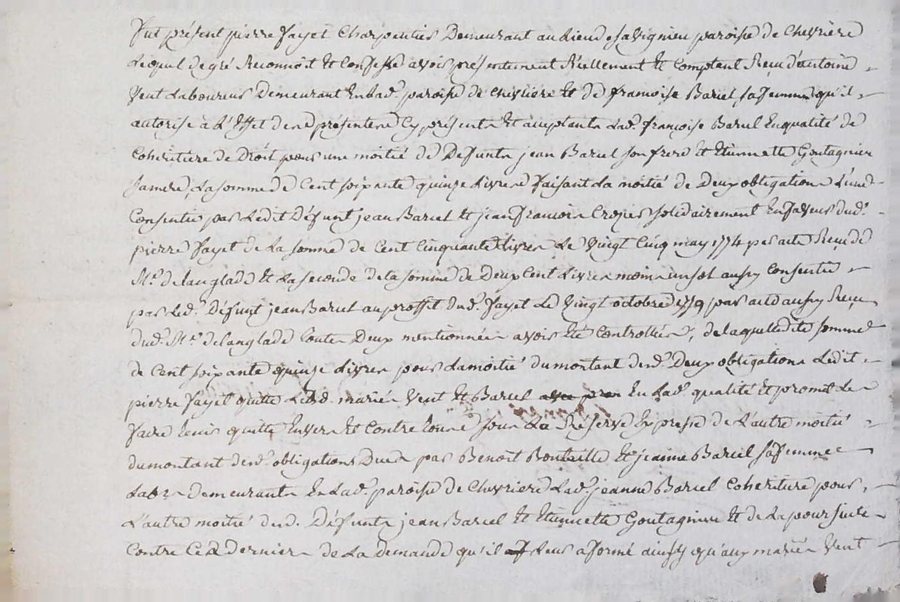 Fut présent pierre fayet Charpentier Demeurant au Lieu de savignieu paroisse de Chevriere
Lequel de gré Reconnoit Et Confesse avoir presentement Reellement Et Comptant Recu d'antoine
Vent Laboureur Demeurant En Lad. paroisse de Chevriere Et de francoise Bariel sa femme qu'il
autorise à L'Effet des presentes Cy présents Et acceptants Lad. francoise Bariel En qualité de
Coheritiere de Droit pour une moitié de Defunts jean Bariel son frere Et Etiennette Goutagnieu
sa mere, La somme de Cent soixante quinze Livres faisant La moitié de Deux obligations L'une
Consentie par Ledit Défunt jean Bariel Et jean francois Crozier solidairement En faveur dud.
pierre fayet de La somme de Cent Cinquante Livres Le Vingt Cinq may 1774 par acte Recu de
Me. delanglade Et La seconde de la somme de Deux Cent Livres moins un sol aussy Consentie
par Led. Défunt jean Bariel au proffit dud. fayet Le Vingt octobre 1779 par acte aussy Recu
dud. Me. delanglade toutes Deux mentionnées avoir Eté Controllées, de laquelle dite somme
de Cent soixante quinze Livres pour La moitié du montant desd. Deux obligations Ledit
pierre fayet quitte Lesd. mariés Vent Et Bariel En Lad. qualité Et promet Les
faire tenir quitte Envers Et Contre tous sous La Reserve Expresse de L'autre moitié
du montant desd. obligations Dues par Benoit Bouteille Et jeanne Bariel sa femme
Lab.r Demeurants En Lad. paroisse de Chevriere Lad. jeanne Bariel Coheritiere pour
L'autre moitié desd. Défunts jean Bariel Et Etiennette Goutagnieu Et de La poursuite
Contre Ces Derniers de La Demande qu'il Leur a formé ainsy qu'aux mariés Vent